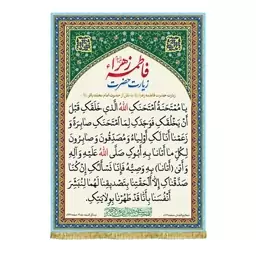 فاطمه زهرا
زیارت حضرت
زیارت حضرت فاطمه زهرا (س) به نقل از حضرت امام محمد باقر (ع)
يَا مُمْتَحَنَةُ امْتَحَنَكِ اللهُ الَّذِي خَلَقَكِ قَبْلَ
أَنْ يَخْلُقَكِ فَوَجَدَكِ لِمَا امْتَحَنَكِ صَابِرَةً وَ
زَعَمْنَا أَنَّا لَكِ أَوْلِيَاءُ وَ مُصَدِّقُونَ وَ صَابِرُونَ
لِكُلِّ مَا أَتَانَا بِهِ أَبُوكِ صَلَّى اللهُ عَلَيْهِ وَ آلِهِ
وَ أَتَى (أَتَانَا) بِهِ وَصِيُّهُ فَإِنَّا نَسْأَلُكِ إِنْ كُنَّا
صَدَّقْنَاكِ إِلَّا أَلْحَقْتِنَا بِتَصْدِيقِنَا لَهُمَا لِنُبَشِّرَ
أَنْفُسَنَا بِأَنَّا قَدْ طَهُرْنَا بِوِلَايَتِكِ